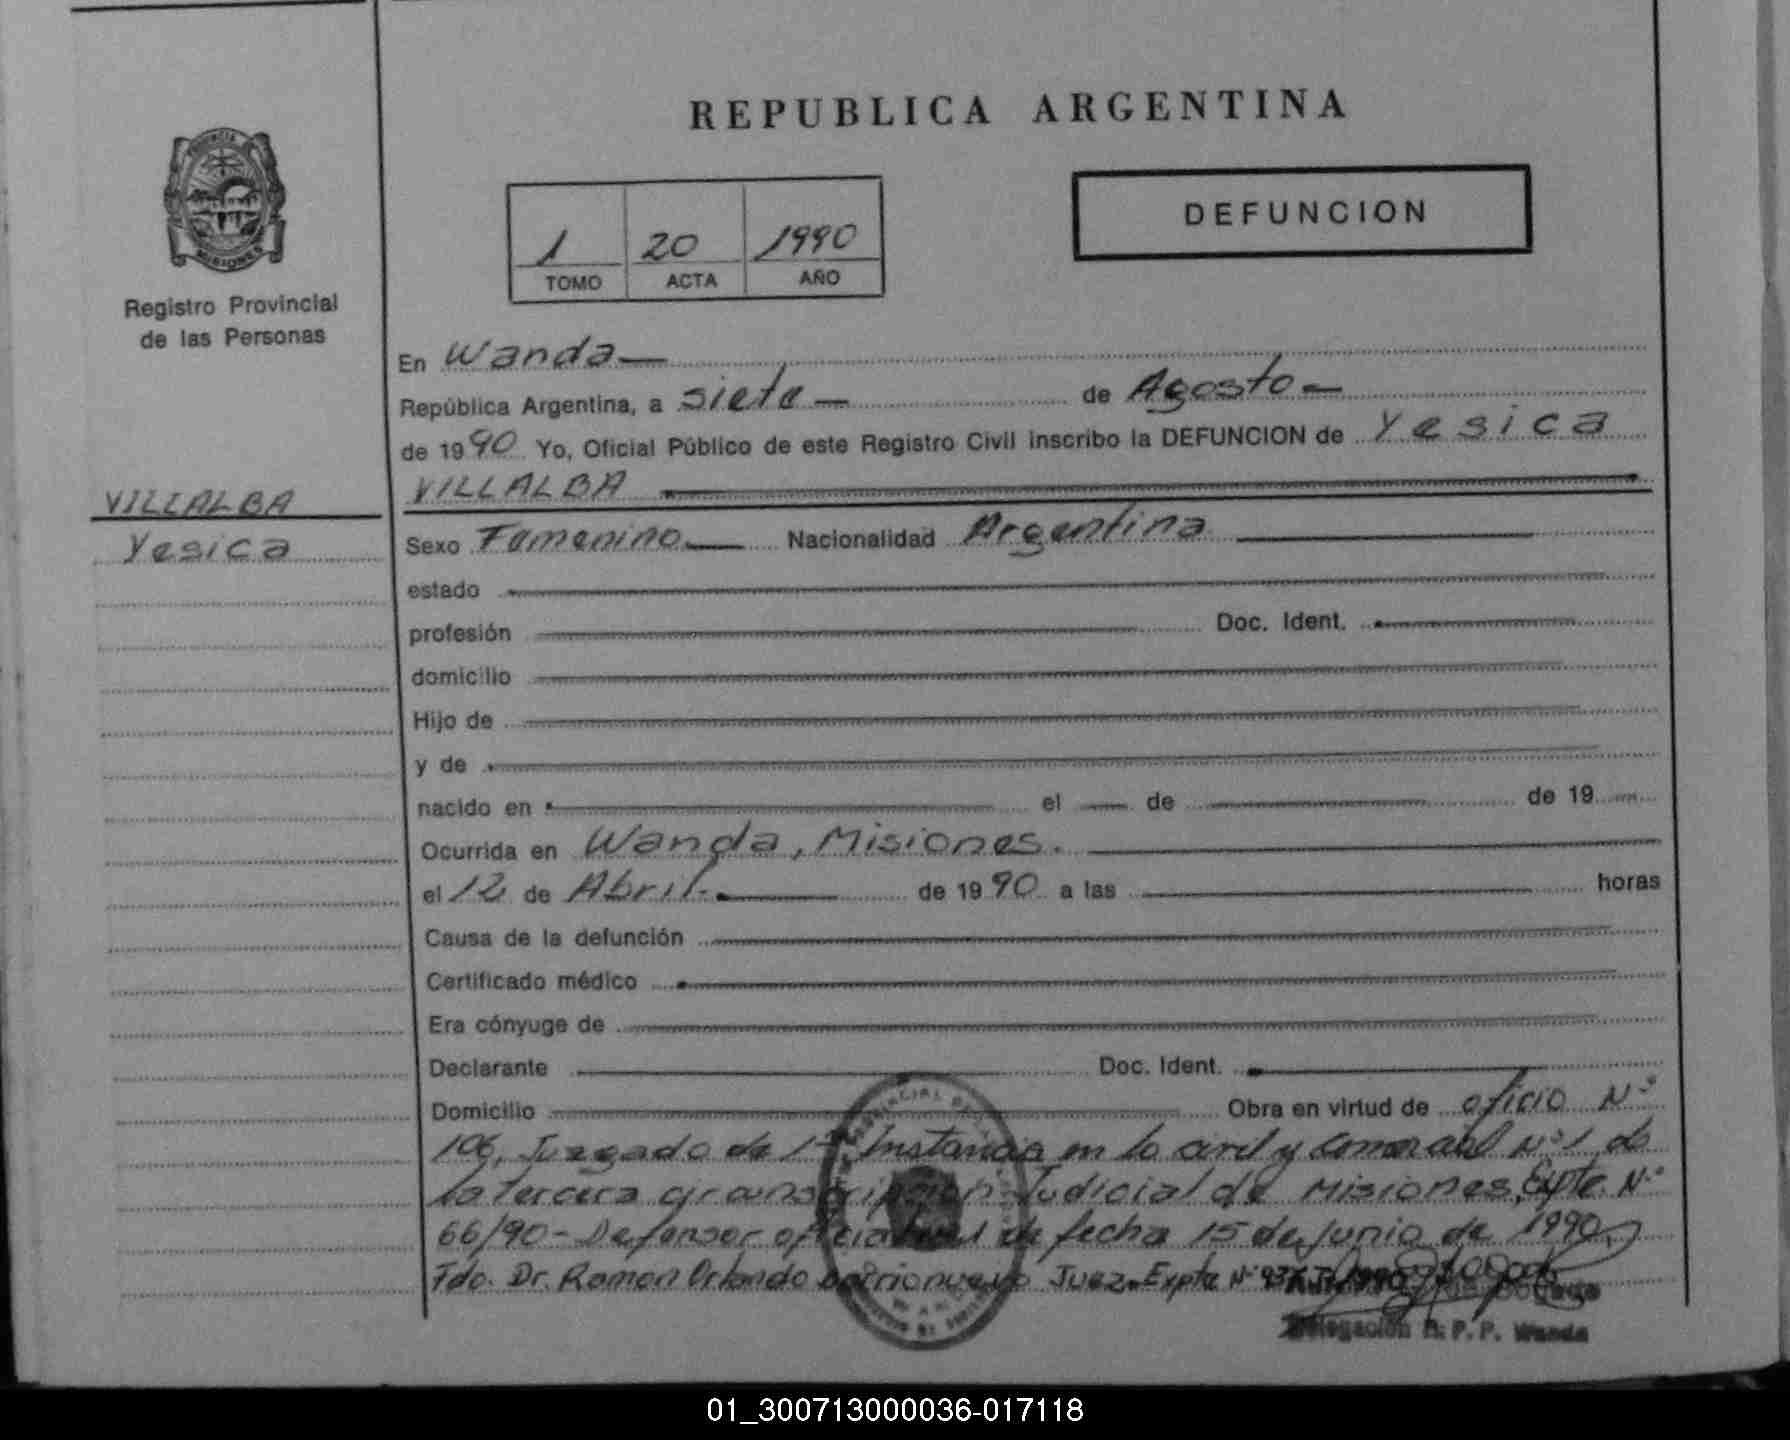 REPUBLICA ARGENTINA
PROVINCIA
MISIONES
Registro Provincial
de las Personas
1 20 1990
TOMO ACTA AÑO
DEFUNCION
En Wanda
República Argentina, a siete de Agosto
de 1990 Yo, Oficial Público de este Registro Civil inscribo la DEFUNCION de Yesica
VILLALBA
VILLALBA
Yesica
Sexo Femenino Nacionalidad Argentina
estado
profesión Doc. Ident.
domicilio
Hijo de
y de
nacido en el de de 19
Ocurrida en Wanda, Misiones.
el 12 de Abril. de 1990 a las horas
Causa de la defunción
Certificado médico
Era cónyuge de
Declarante Doc. Ident.
Domicilio Obra en virtud de oficio N°
106, Juzgado de 1ª Instancia en lo civil y Comercial N° 1 de
la tercera circunscripción Judicial de Misiones, Expte. N°
66/90 - Defensor oficial de fecha 15 de Junio de 1990,
Fdo. Dr. Ramon Orlando Barrionuevo Juez. Expte N°
Delegación R. P. P. Wanda
01_300713000036-017118